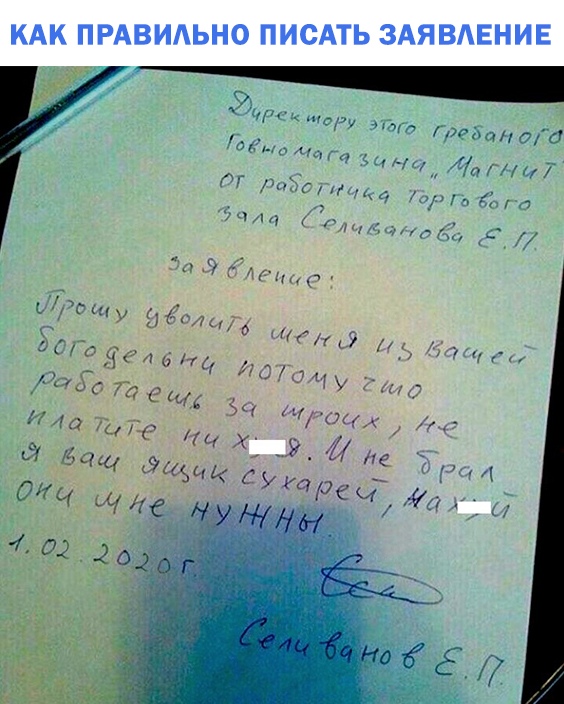 КАК ПРАВИЛЬНО ПИСАТЬ ЗАЯВЛЕНИЕ
Директору этого гребаного
говномагазина „Магнит"
от работника торгового
зала Селиванова Е.П.
заявление:
Прошу уволить меня из вашей
богодельни потому что
работаешь за троих, не
платите ни х я. И не брал
я ваш ящик сухарей, нах й
они мне нужны
1.02.2020г.
Селиванов Е.П.